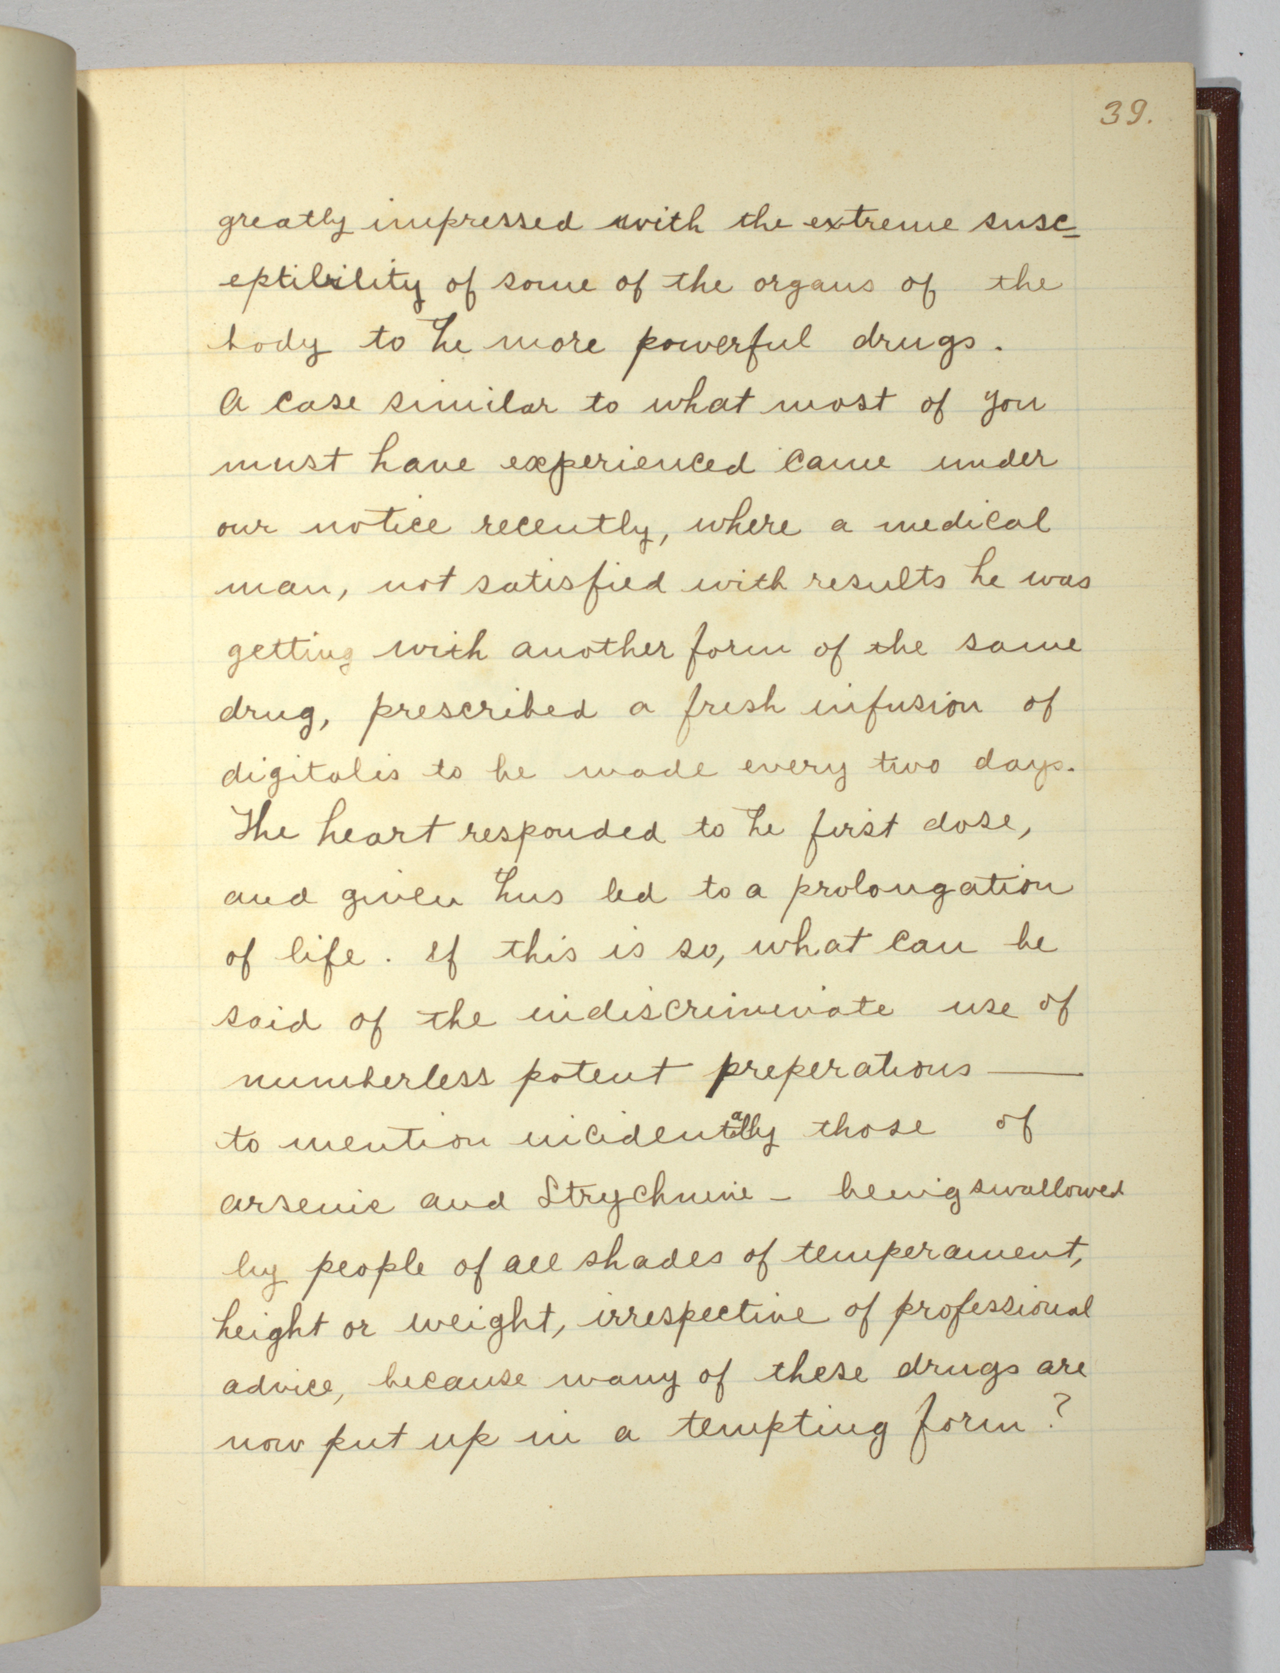 39.
greatly impressed with the extreme susc-
eptibility of some of the organs of the
body to the more powerful drugs.
A case similar to what most of you
must have experienced came under
our notice recently, where a medical
man, not satisfied with results he was
getting with another form of the same
drug, prescribed a fresh infusion of
digitalis to be made every two days.
The heart responded to the first dose,
and given thus led to a prolongation
of life. If this is so, what can be
said of the indiscriminate use of
numberless potent preperations —
to mention incidentally those of
arsenic and Strychnine - being swallowed
by people of all shades of temperament,
height or weight, irrespective of professional
advice, because many of these drugs are
now put up in a tempting form?